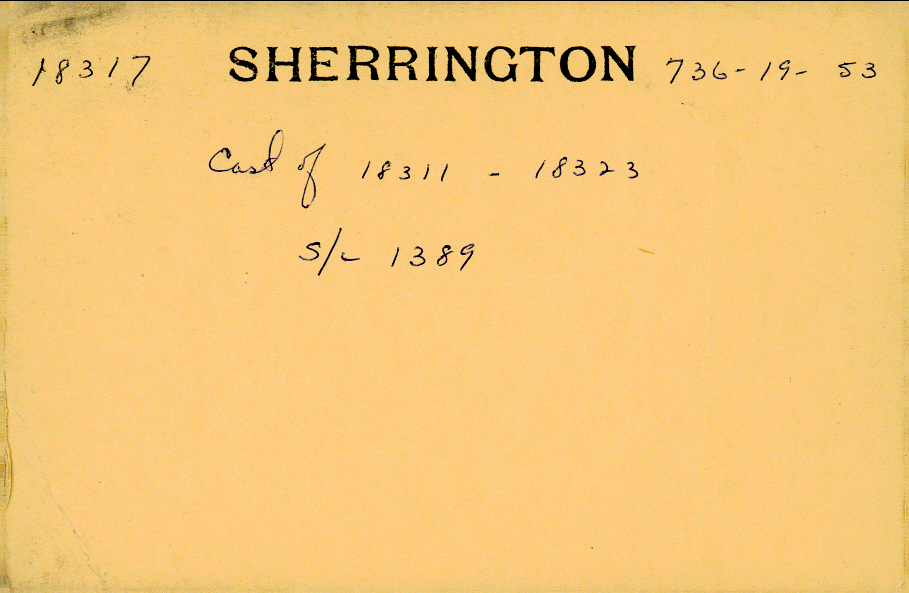 18317 SHERRINGTON 736-19-53
Cast of 18311 - 18323
S/c 1389